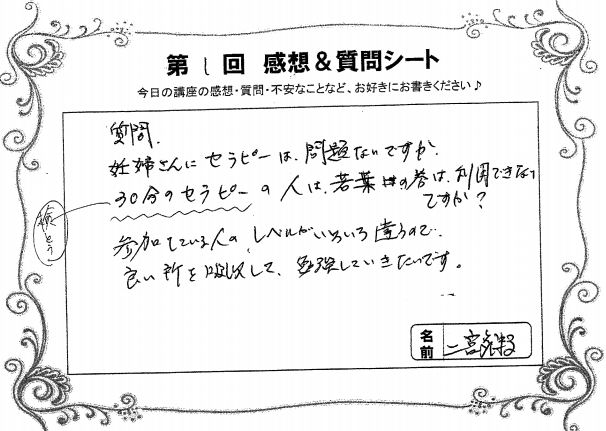 第1回 感想&質問シート
今日の講座の感想・質問・不安なことなど、お好きにお書きください♪
質問.
妊婦さんに セラピーは、問題ないですか.
30分のセラピーの人は、若葉の巻は、利用できない
ですか?
参加している人の、レベルがいろいろ違うので、
良い所を吸収して、勉強していきたいです。
名前 二宮